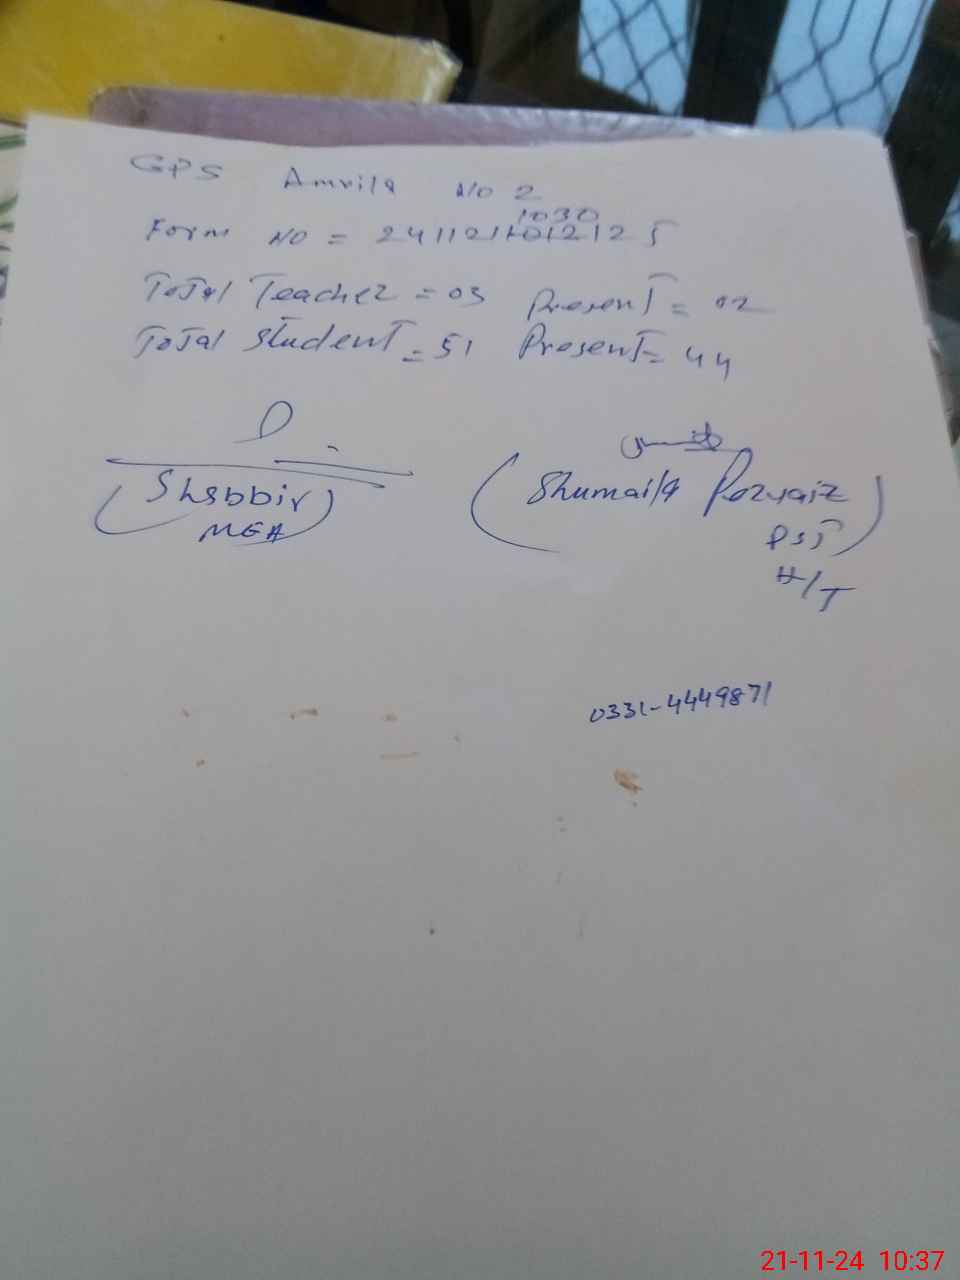 GPS Amrila No 2
1030
Form No = 241121101212 5
Total Teacher = 03 Present = 02
Total Student = 51 Present = 44
(Shabbir) (Shumaila Pervaiz)
MEA PST
H/T
0331-4449871
21-11-24 10:37